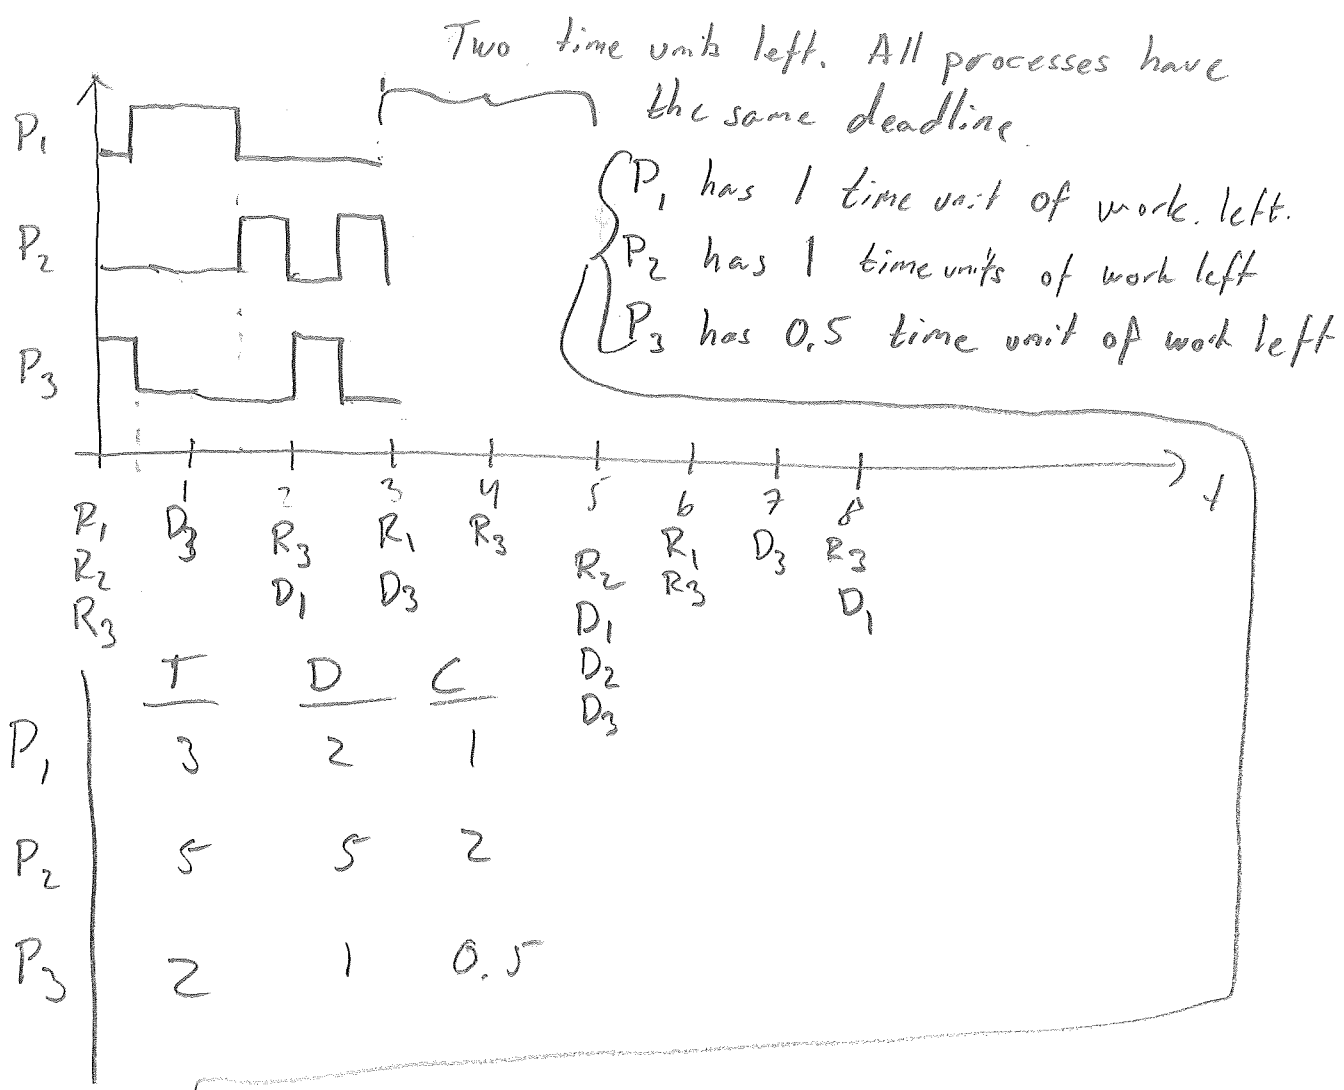 Two time units left. All processes have
the same deadline.
P1 has 1 time unit of work left.
P2 has 1 time units of work left
P3 has 0.5 time unit of work left
P1
P2
P3
1 2 3 4 5 6 7 8 t
R1 D3 R3 R1 R3 R2 R1 D3 R3
R2 D1 D3 D1 R3 D1
R3 D2
D3
T D C
P1 3 2 1
P2 5 5 2
P3 2 1 0.5